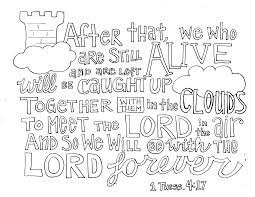 After that, we who
are still ALIVE
and are left
will be CAUGHT UP
TOGETHER WITH THEM in the CLOUDS
To MEET the LORD in the air
And so we will be with the
LORD forever
1 Thess. 4:17